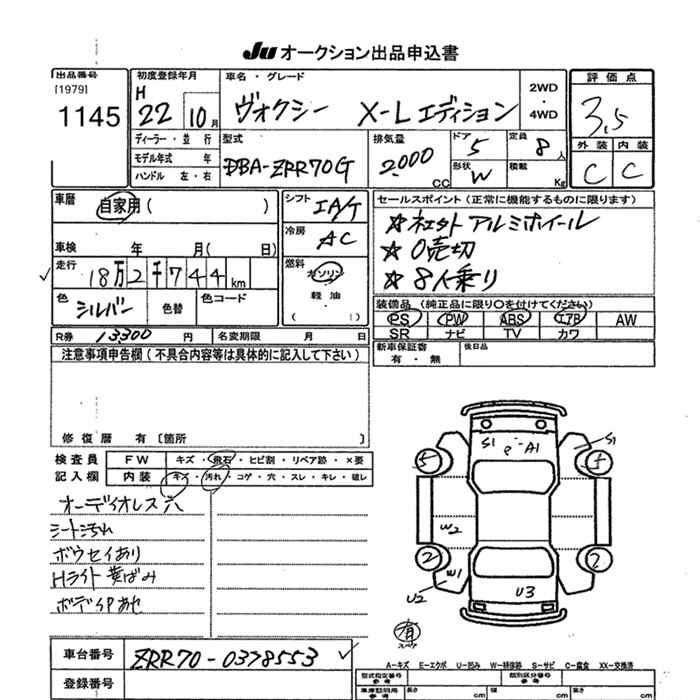 JU オークション出品申込書
出品番号 初度登録年月 車名・グレード 2WD・4WD 評価点
[1979] H
1145 22 10月 ヴォクシー X-Lエディション 3.5
ディーラー・並行 型式 排気量 ドア 5 定員 8人 外装 内装
モデル年式 年 DBA-ZRR70G 2000CC 形状 W 積載 Kg C C
ハンドル 左・右
車歴 自家用( ) シフト IAT セールスポイント(正常に機能するものに限ります)
☆社外アルミホイール
車検 年 月( 日) 冷房 AC ☆0売切
走行 18万2千744km 燃料 ガソリン・軽油・( ) ☆8人乗り
色 シルバー 色替 色コード 装備品(純正品に限り〇を付けてください)
PS PW ABS エアB AW
R券 13300円 名変期限 月 日 SR ナビ TV カワ
注意事項申告欄(不具合内容等は具体的に記入して下さい) 新車保証書 有・無 後日品
修復歴 有〔箇所 〕
検査員 FW キズ・飛石・ヒビ割・リペア跡・×要
記入欄 内装 キズ・汚れ・コゲ・穴・スレ・キレ・破レ
オーディオレス穴
シート汚れ
ボウセイあり
Hライト黄ばみ
ボディ
S1 e A1 S1
5 5
W2
2 2
W1
U2 U3
有
車台番号 ZRR70-0378553
登録番号
A-キズ E-エクボ U-凹み W-補修跡 S-サビ C-腐食 XX-交換済
型式指定番号 参考 類別区分番号 参考
車庫証明用 参考 長さ cm 幅 cm 高さ cm